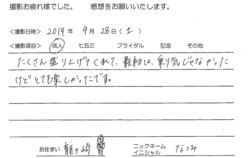 撮影お疲れ様でした。 感想をお願いいたします。
<撮影日時> 2019年 9月 28日 (土)
<撮影項目> 成人 七五三 ブライダル 記念 その他
たくさん盛り上げてくれて、最初は、乗り気じゃなかった
けどとても楽しかったです。
お住まい 龍ヶ崎 ニックネーム イニシャル なつみ